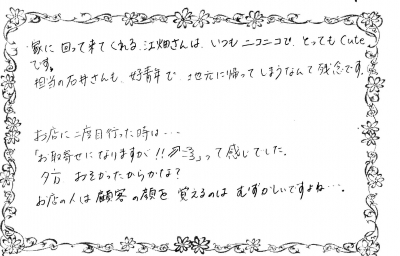 家に回って来てくれる江畑さんは、いつもニコニコで、とってもcute
です。
担当の石井さんも、好青年で 地元に帰ってしまうなんて残念です。
お店に二度目行った時は…
「お取寄せになりますが!! 」って感じでした。
夕方 おそかったからかな?
お店の人は顧客の顔を 覚えるのは むずかしいですよね…。